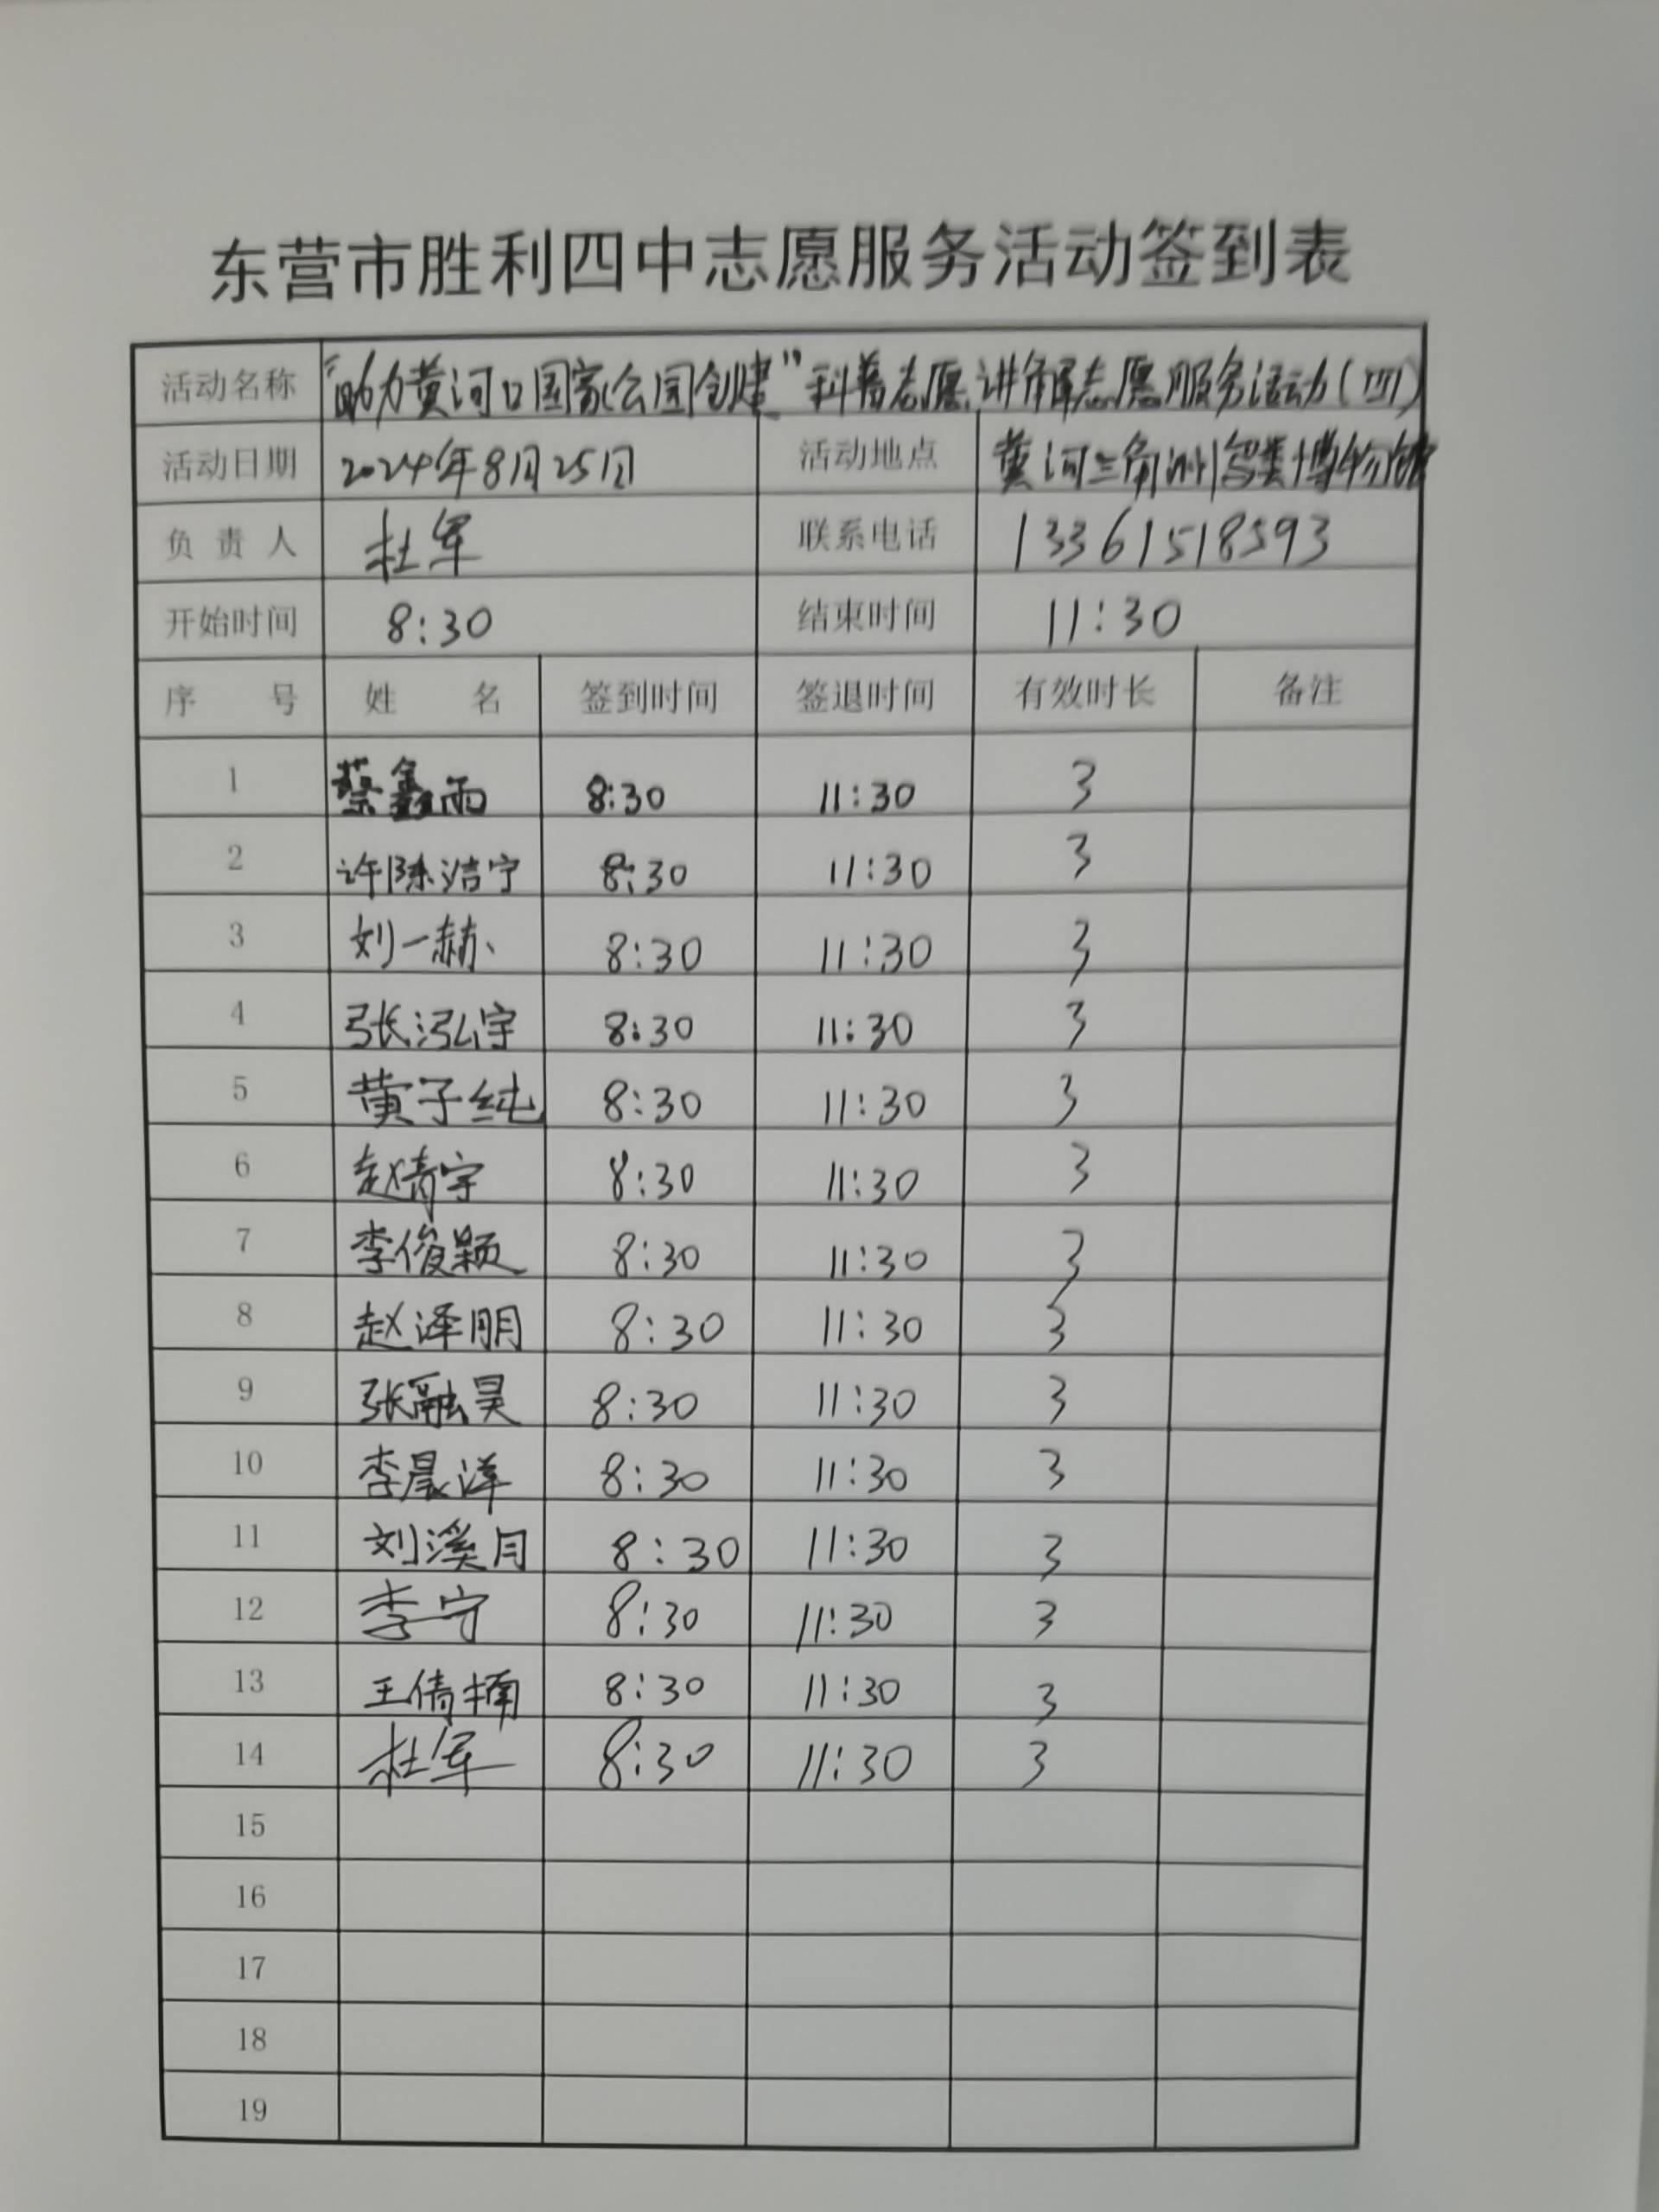 东营市胜利四中志愿服务活动签到表
活动名称 “助力黄河口国家公园创建”科普志愿讲解志愿服务活动(四)
活动日期 2024年8月25日 活动地点 黄河三角洲鸟类博物馆
负责人 杜军 联系电话 13361518593
开始时间 8:30 结束时间 11:30
序号 姓名 签到时间 签退时间 有效时长 备注
1 蔡鑫雨 8:30 11:30 3
2 许陈洁宁 8:30 11:30 3
3 刘一赫 8:30 11:30 3
4 张泓宇 8:30 11:30 3
5 黄子纯 8:30 11:30 3
6 赵清宇 8:30 11:30 3
7 李俊颖 8:30 11:30 3
8 赵泽朋 8:30 11:30 3
9 张融昊 8:30 11:30 3
10 李晨洋 8:30 11:30 3
11 刘溪月 8:30 11:30 3
12 李宁 8:30 11:30 3
13 王倩楠 8:30 11:30 3
14 杜军 8:30 11:30 3
15
16
17
18
19